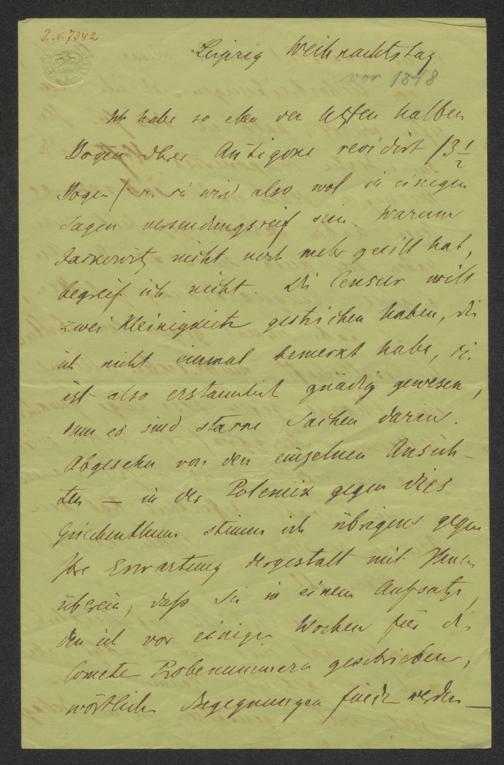 I.N. 7342
Leipzig Weihnachtstag
vor 1848
Ich habe so eben den letzten halben
Bogen Ihrer Antigone revidirt (3 1/2
Bogen) u. sie wird also wol in einigen
Tagen versendungsreif sein. Warum
nicht mehr geeilt hat,
begreif ich nicht. Die Censur will
zwei Kleinigkeiten gestrichen haben, die
ich nicht einmal bemerkt habe, sie
ist also erstaunlich gnädig gewesen,
denn es sind starke Sachen darin.
Abgesehn von den einzelnen Ansich-
ten — in der Polemik gegen dies
Griechenthum stimm ich übrigens gegen
Ihre Erwartung dergestalt mit Ihnen
überein, daß Sie in einem Aufsatze,
den ich vor einigen Wochen für die
Comete Probenummern geschrieben,
wörtliche Begegnungen finden werden —